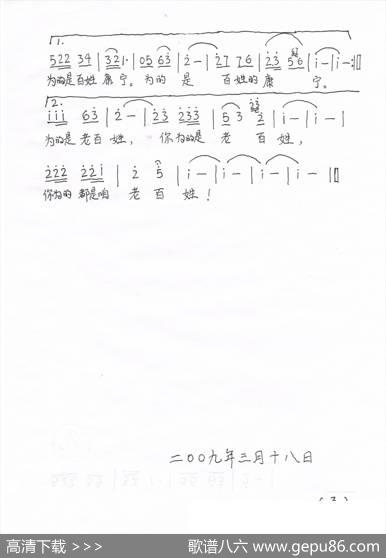 1.
522 34 | 321· | 05 63 | 2 — | 27 76 | 23 56 | i — | i — :||
为的是百姓康宁。为的 是 百姓的康 宁。
2.
iii 63 | 2 — | 23 233 | 5 3 2 | i — | i — |
为的是老百姓， 你为的是 老 百 姓，
222 22i | 2 5 | i — | i — | i — | i — ||
你为的 都是咱 老 百 姓！
二〇〇九年三月十八日
(3)
高清下载 >>>
歌谱八六 www.gepu86.com